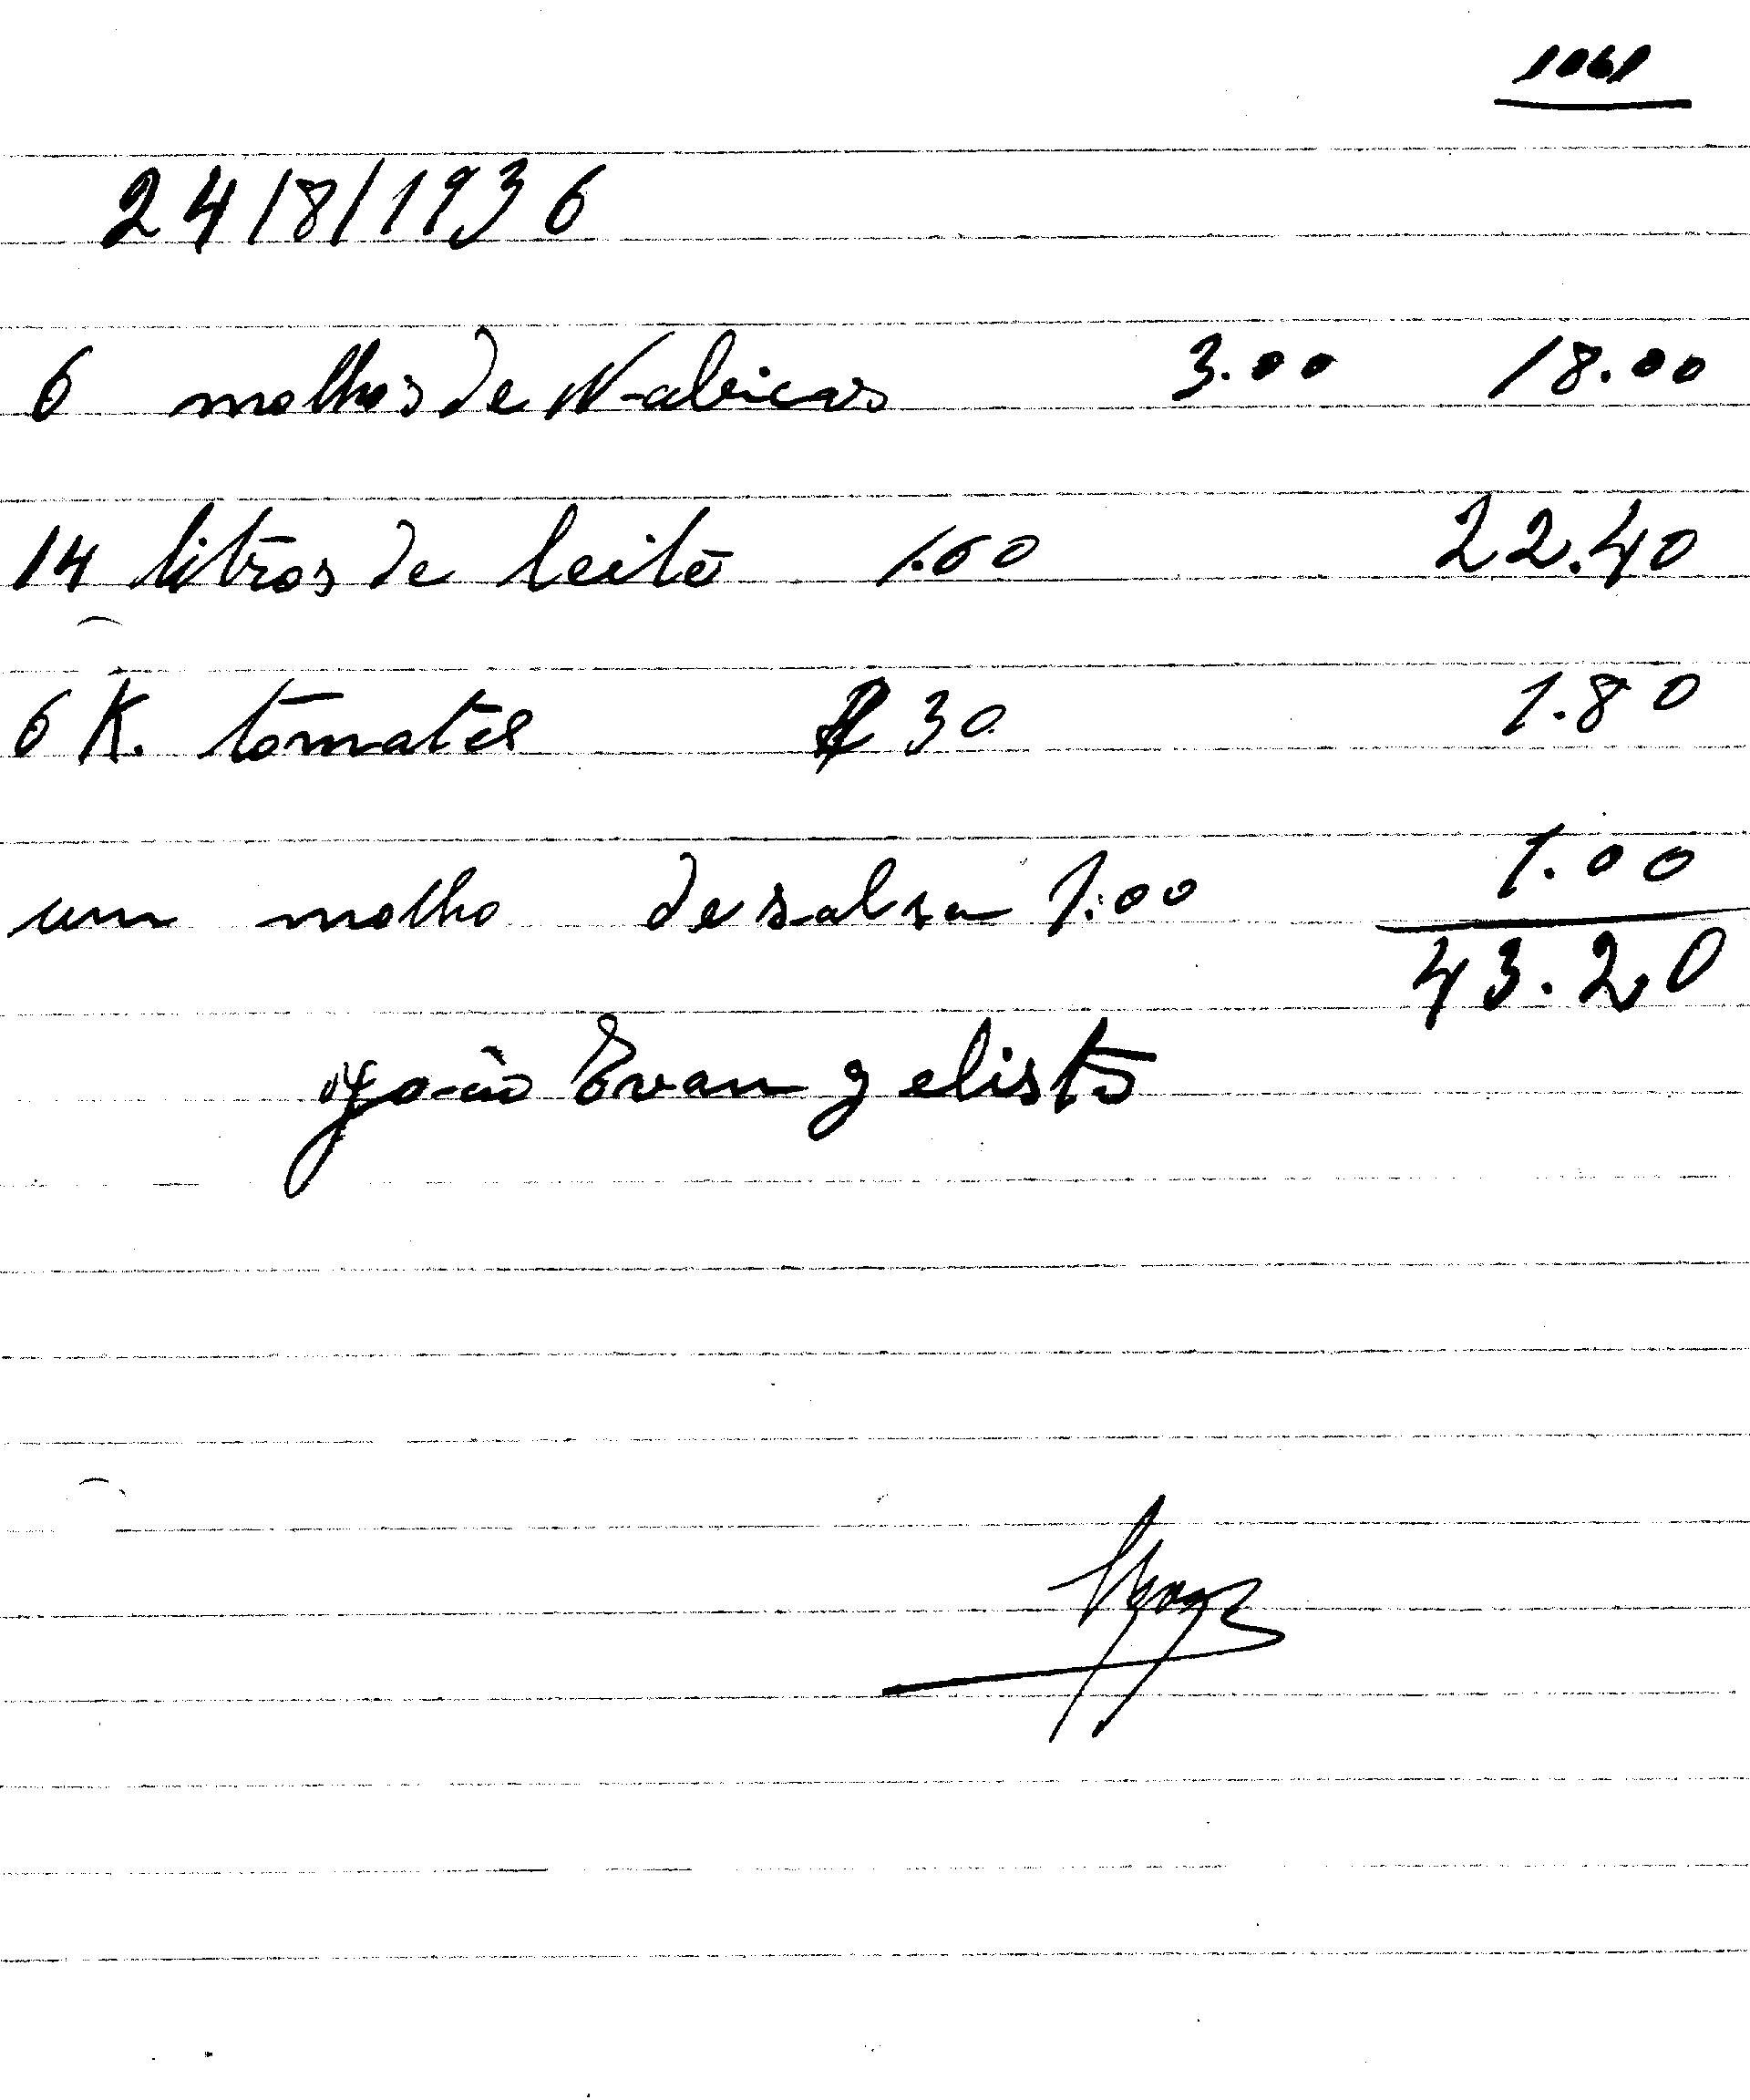 1061
24/8/1936
6 molhos de Nabicas 3.00 18.00
14 litros de leite 1.60 22.40
6 K. tomates $30 1.80
um molho de salsa 1.00 1.00
43.20
João Evangelista